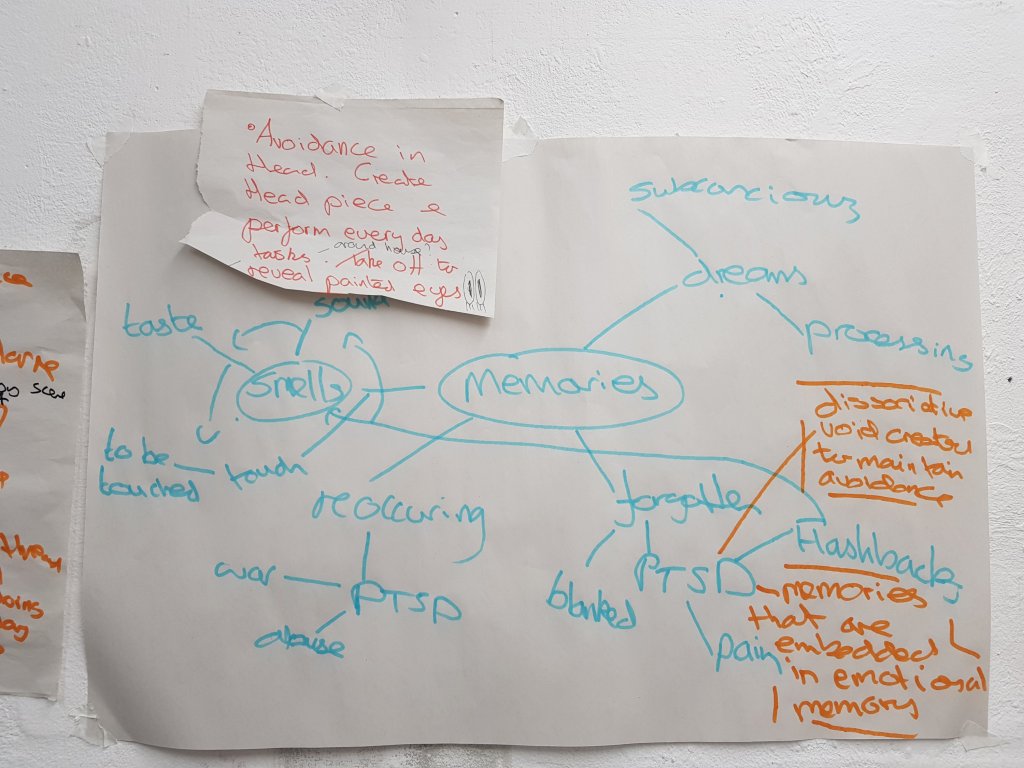 •Avoidance in
Head. Create
Head piece &
perform everyday
around house
tasks. Take off to
reveal painted eyes
sound
taste
smells
to be
touched
touch
Memories
subconcious
dreams
processing
dissociative
void created
to maintain
avoidance
reoccuring
war
PTSD
abuse
forgotten
blanked
PTSD
pain
Flashbacks
memories
that are
embedded
in emotional
memory
scene